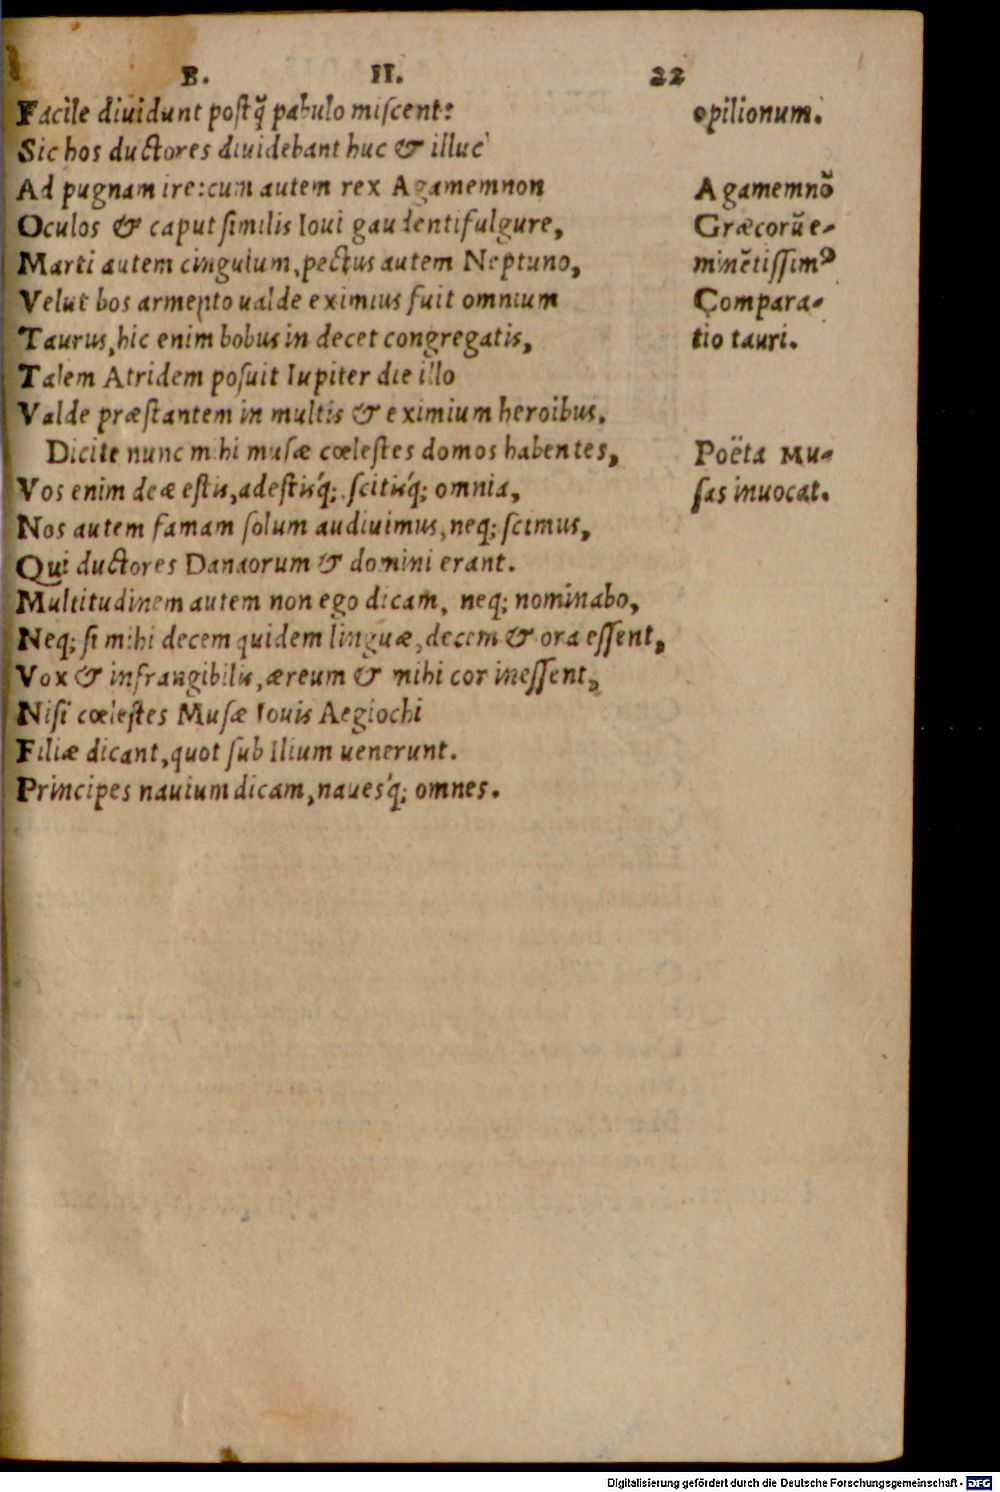 B. II. 22
Facile diuidunt postq̃ pabulo miscent:
Sic hos ductores diuidebant huc & illuc
Ad pugnam ire:cum autem rex Agamemnon
Oculos & caput similis Ioui gaudentifulgure,
Marti autem cingulum,pectus autem Neptuno,
Velut bos armento ualde eximius fuit omnium
Taurus,hic enim bobus in decet congregatis,
Talem Atridem posuit Iupiter die illo
Valde præstantem in multis & eximium heroibus.
Dicite nunc mihi musæ cœlestes domos habentes,
Vos enim deæ estis,adestisq́;,scitisq́; omnia,
Nos autem famam solum audiuimus,neq; scimus,
Qui ductores Danaorum & domini erant.
Multitudinem autem non ego dicam, neq; nominabo,
Neq; si mihi decem quidem linguæ,decem & ora essent,
Vox & infrangibilis,æreum & mihi cor inessent,
Nisi cœlestes Musæ Iouis Aegiochi
Filiæ dicant,quot sub Ilium uenerunt.
Principes nauium dicam,nauesq́; omnes.
opilionum.
Agamemnõ
Græcorũ e-
minẽtissimꝰ
Compara-
tio tauri.
Poëta Mu-
sas inuocat.
Digitalisierung gefördert durch die Deutsche Forschungsgemeinschaft - DFG